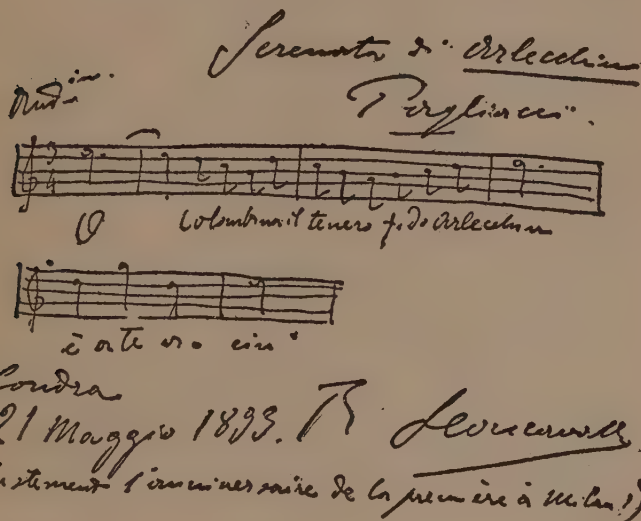 Serenata di Arlecchin
Pagliacci.
And.in.
3
4
O Colombina il tenero fido Arlecchin
è a te vicin
Londra
21 Maggio 1893. R Leoncavallo
l'anniversaire de la première à Milan!)